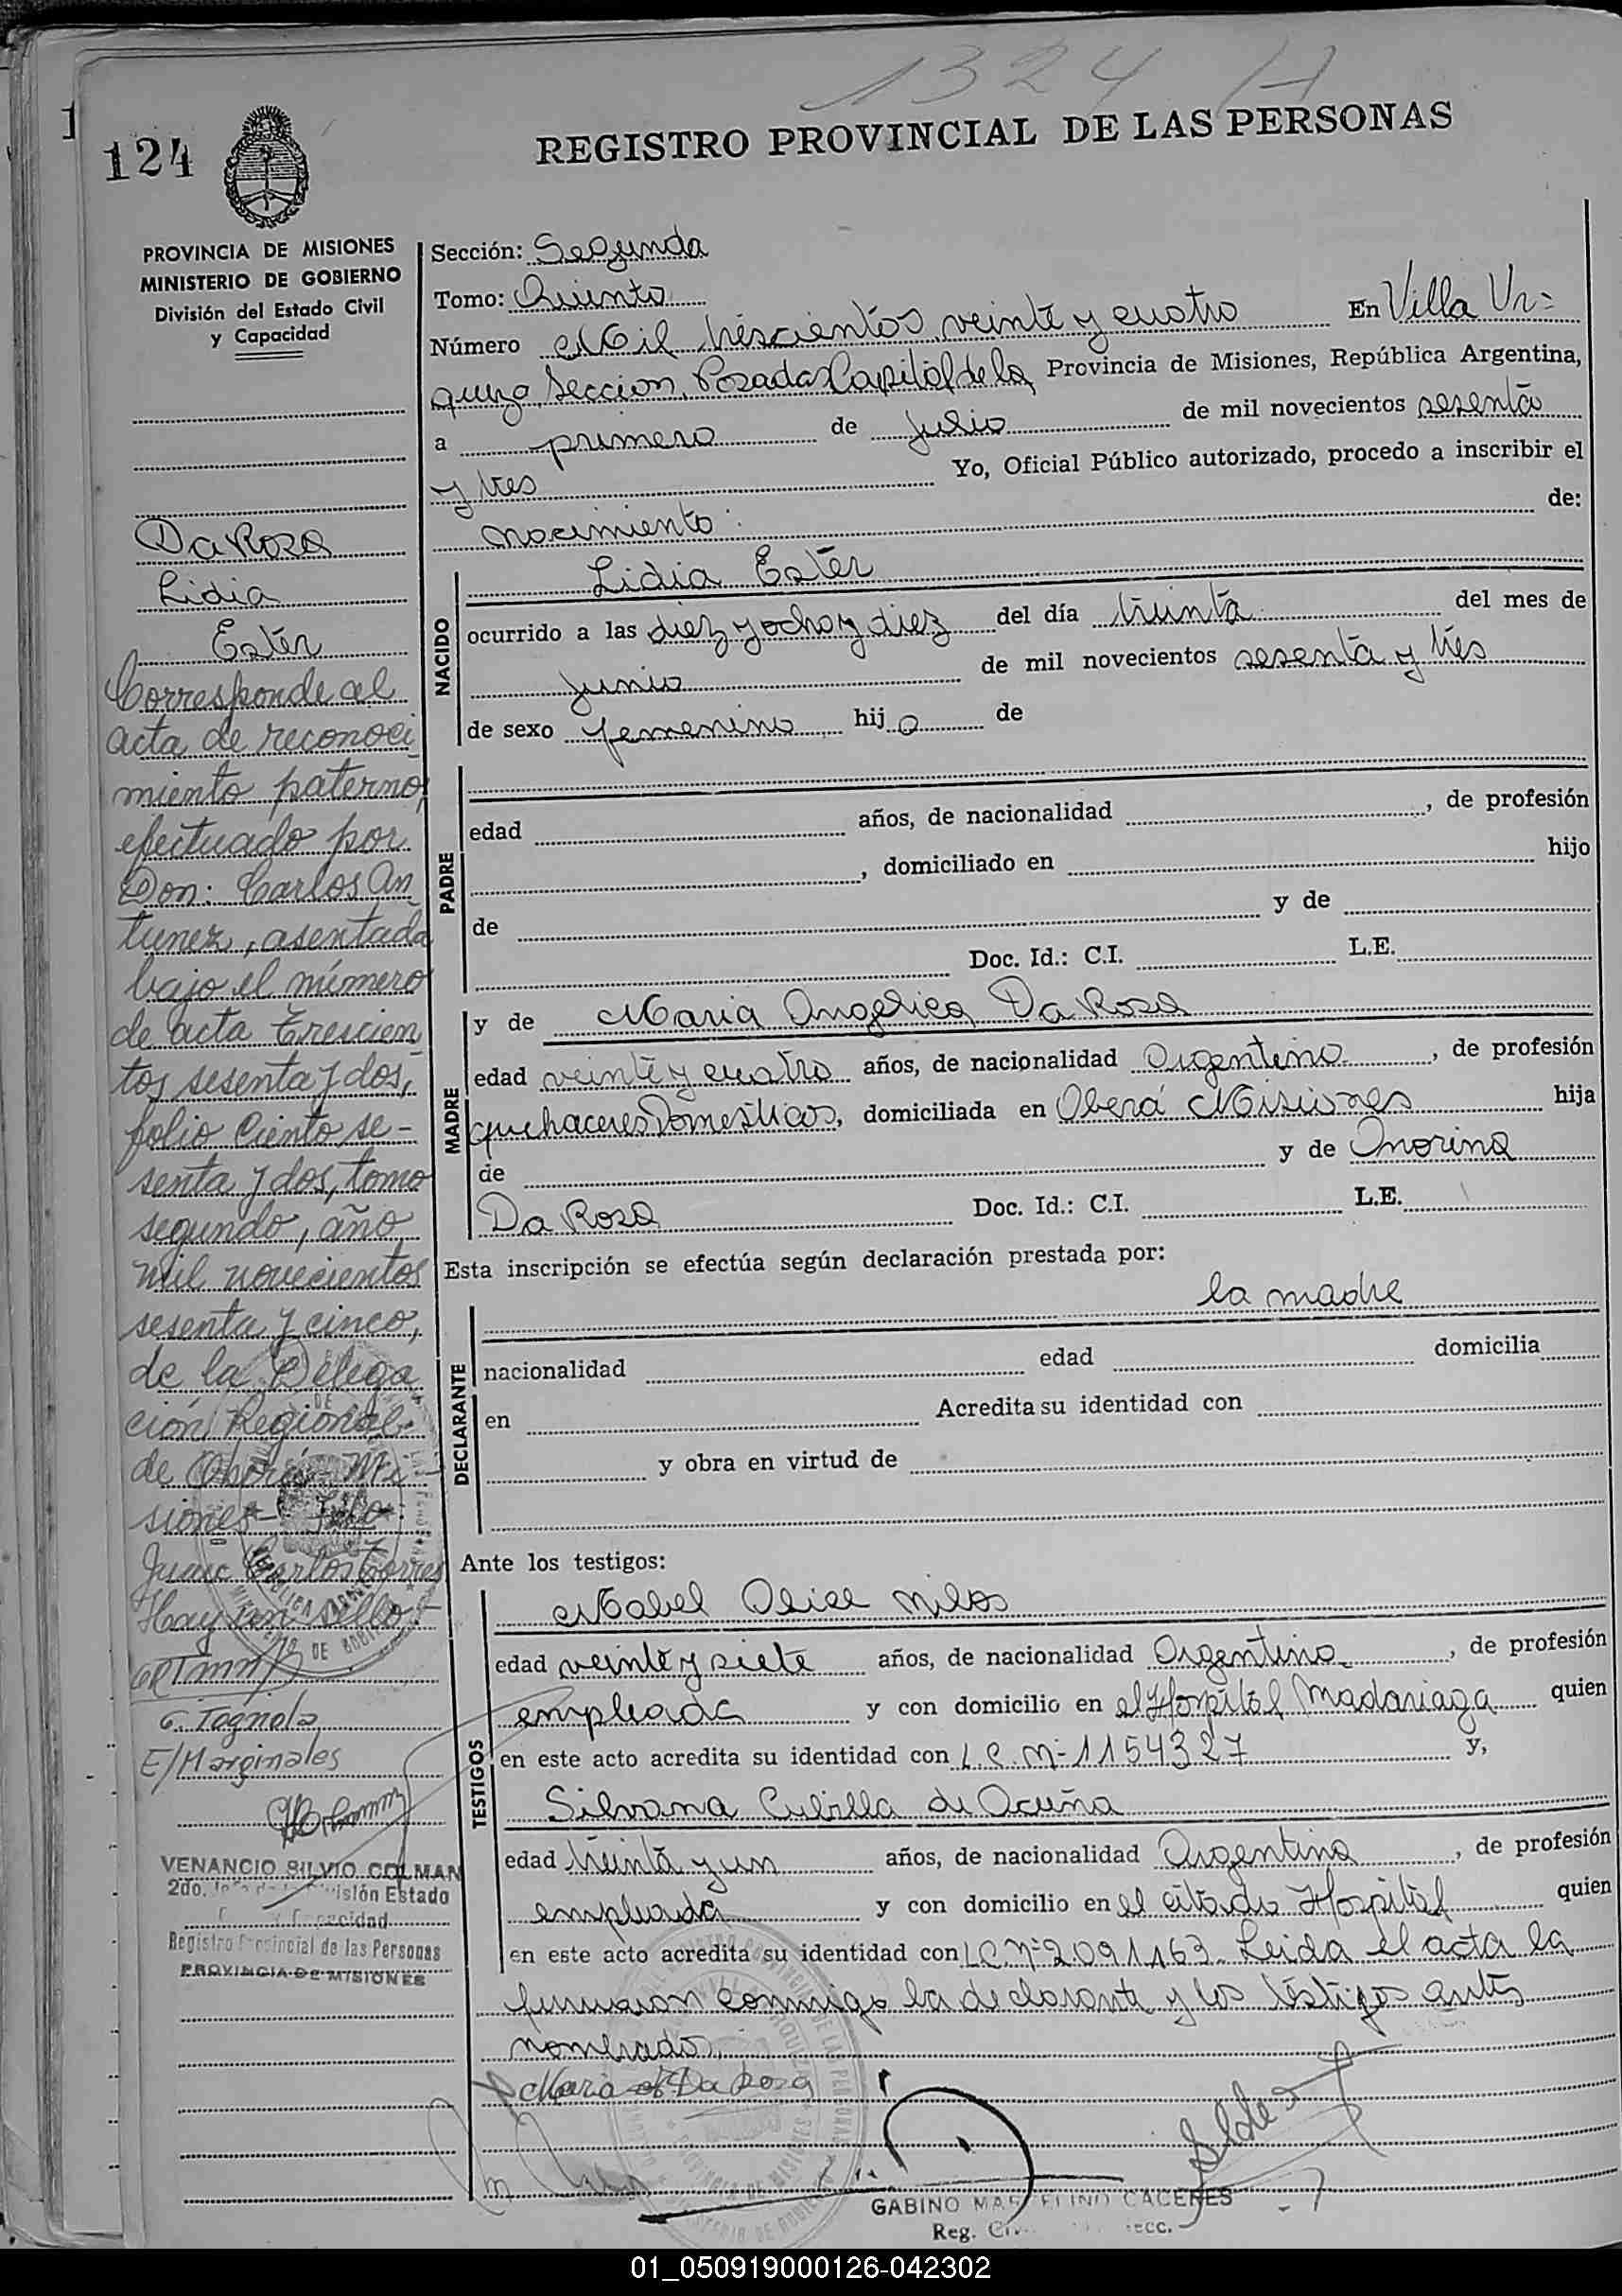 1324 H
124
REGISTRO PROVINCIAL DE LAS PERSONAS
PROVINCIA DE MISIONES
MINISTERIO DE GOBIERNO
División del Estado Civil
y Capacidad
Da Rosa
Lidia
Ester
Corresponde al
acta de reconoci
miento paterno,
efectuado por
Don: Carlos An
tunez, asentada
bajo el número
de acta trescien
tos sesenta y dos,
folio ciento se-
senta y dos, tomo
segundo, año
mil novecientos
sesenta y cinco,
de la Delega
ción Regional
de Oberá - Mi
siones - Fdo:
Juan Carlos Torres
Hay un sello.-
G. Tognola
E/Marginales
VENANCIO SILVIO COLMAN
2do. Jefe de la División Estado
Registro Provincial de las Personas
PROVINCIA DE MISIONES
Sección: Segunda
Tomo: Quinto
Número Mil trescientos veinte y cuatro En Villa Ur=
quiza Seccion, Posadas Capital de la Provincia de Misiones, República Argentina,
a primero de Julio de mil novecientos sesenta
y tres Yo, Oficial Público autorizado, procedo a inscribir el
nacimiento: de:
NACIDO
Lidia Ester
ocurrido a las diez y ocho y diez del día treinta del mes de
Junio de mil novecientos sesenta y tres
de sexo femenino hija de
PADRE
edad años, de nacionalidad , de profesión
, domiciliado en hijo
de y de
Doc. Id.: C.I. L.E.
MADRE
y de Maria Angelica Da Rosa
edad veinte y cuatro años, de nacionalidad Argentina , de profesión
quehaceres Domesticos, domiciliada en Oberá Misiones hija
de y de Onorina
Da Rosa Doc. Id.: C.I. L.E.
Esta inscripción se efectúa según declaración prestada por:
DECLARANTE
la madre
nacionalidad edad domicilia
en Acredita su identidad con
y obra en virtud de
Ante los testigos:
TESTIGOS
Mabel Alice
edad veinte y siete años, de nacionalidad Argentina , de profesión
empleada y con domicilio en el Hospital Madariaga quien
en este acto acredita su identidad con L.C. Nº 1154327 y,
Silvana Cubilla de Acuña
edad treinta y un años, de nacionalidad Argentina , de profesión
empleada y con domicilio en el citado Hospital quien
en este acto acredita su identidad con L.C. Nº 2.091.163. Leida el acta la
firmaron conmigo la declarante y los testigos antes
nombrados.
Maria A Da Rosa
GABINO MARCELINO CACERES
Reg. Civ. Secc.
01_050919000126-042302